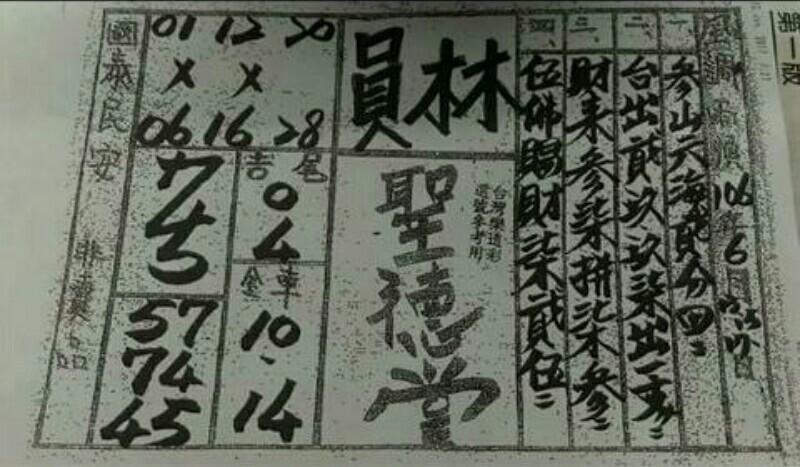 第一版
風調雨順 106年6月
一、參山六海貳分四
二、台出貳玖玖柒出
三、財來參柒拼柒參
四、伍佛賜財柒貳伍
林員
台灣樂透彩
選號參考用
聖德堂
01 12 20
X X
06 16 28
吉尾
0
4
金車
10、14
57
74
45
國泰民安
非賣品